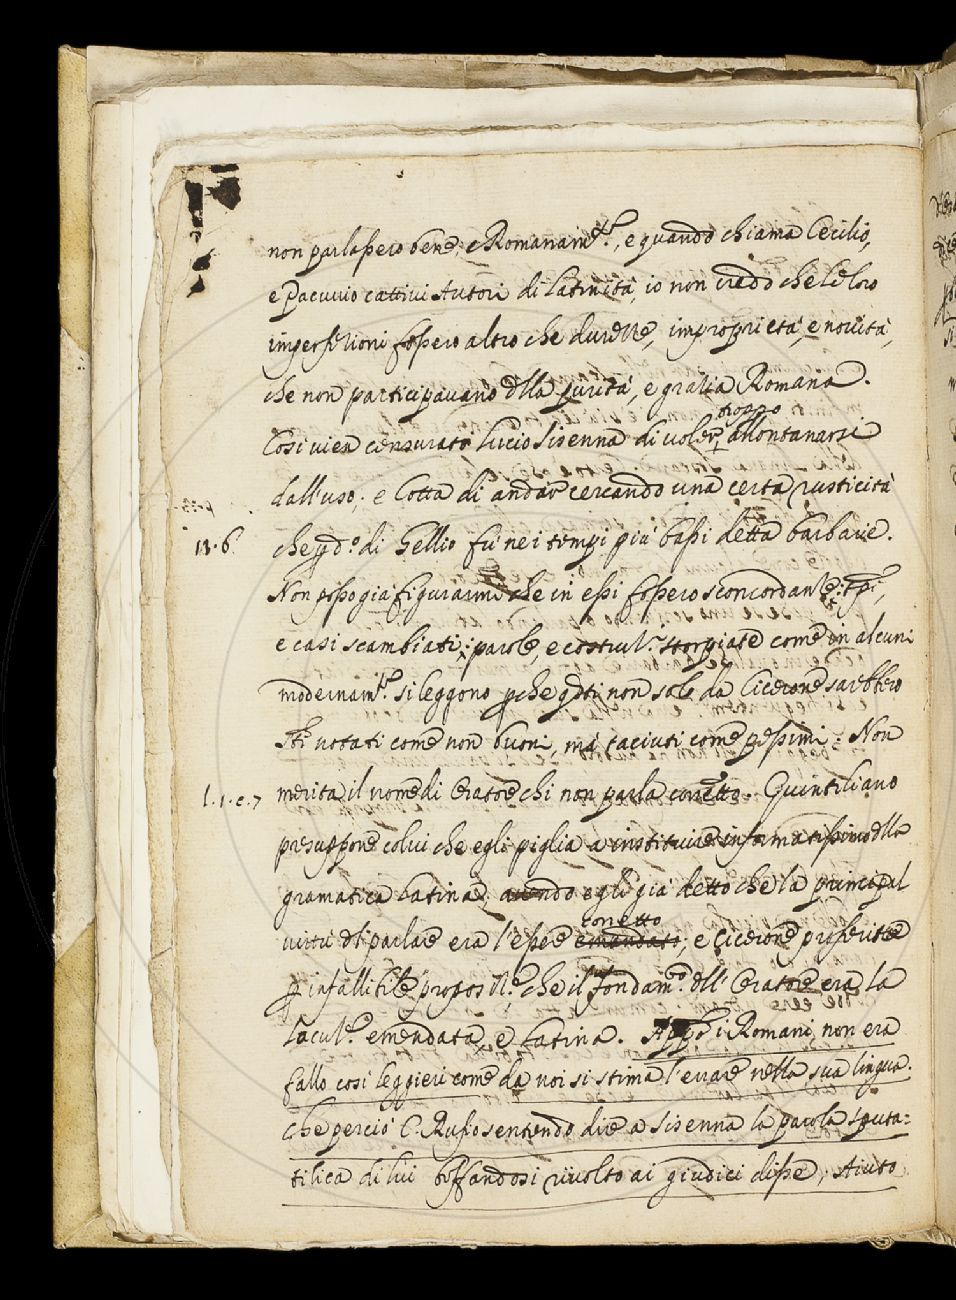 non parlassero bene, e Romanam.te, e quando chiama Cecilio,
e Pacuvio cattivi Autori di Latinità, io non credo che le loro
imperfetioni fossero altro che durezze, improprietà, e novità,
che non participavano dlla purità, e gratia Romana.
troppo
Cosi vien censurato Lucio Sisenna di voler allontanarsi
dall'uso, e Cotta di andar cercando una certa rusticità
13. 6.
che qdo. di Gellio fù nei tempi più bassi detta barbarie.
Non posso già figurarmi che in essi fossero sconcordanze: tpi,
e casi scambiati; parole, e costrut.ni storpiate come in alcuni
modernam.te si leggono, pche qsti non solo da Cicerone sarebbero
sti notati come non buoni, mà taciuti come pessimi: Non
l. 1. c. 7
merita il nome di Oratore chi non parla corretto. Quintiliano
presuppone colui che egli piglia a instituire informatissimo dlla
gramatica Latina, avendo egli già detto che la principal
corretto
virtù dl parlare era l'essere emandato, e Cicerone proferisce
p infallibile propos.ne che il fondam.to dll' Oratore era la
locut.ne emendata, e Latina. i Romani non era
fallo cosi leggieri come da noi si stima l'errare nella sua lingua.
che perciò C. Rufio sentendo dire a Sisenna la parola sputa=
tilica di lui beffandosi rivolto ai giudici disse, Aiuto